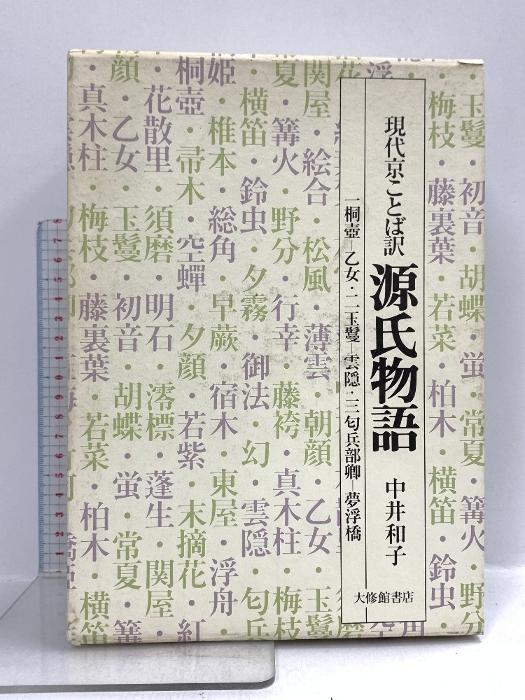 現代京ことば訳 源氏物語 中井和子
一桐壺―乙女・二玉鬘―雲隠・三匂兵部卿―夢浮橋
大修館書店
玉鬘・初音・胡蝶・蛍・常夏・篝火・野分
梅枝・藤裏葉・若菜・柏木・横笛・鈴虫
関屋・絵合・松風・薄雲・朝顔・乙女・玉鬘
夏・篝火・野分・行幸・藤袴・真木柱・梅枝
横笛・鈴虫・夕霧・御法・幻 雲隠・匂兵
姫・椎本・総角・早蕨・宿木・東屋・浮舟
桐壺・帚木・空蟬・夕顔・若紫・末摘花・紅
花散里・須磨・明石・澪標・蓬生・関屋
顔・乙女・玉鬘・初音・胡蝶・蛍・常夏・篝
真木柱・梅枝・藤裏葉・若菜・柏木・横笛